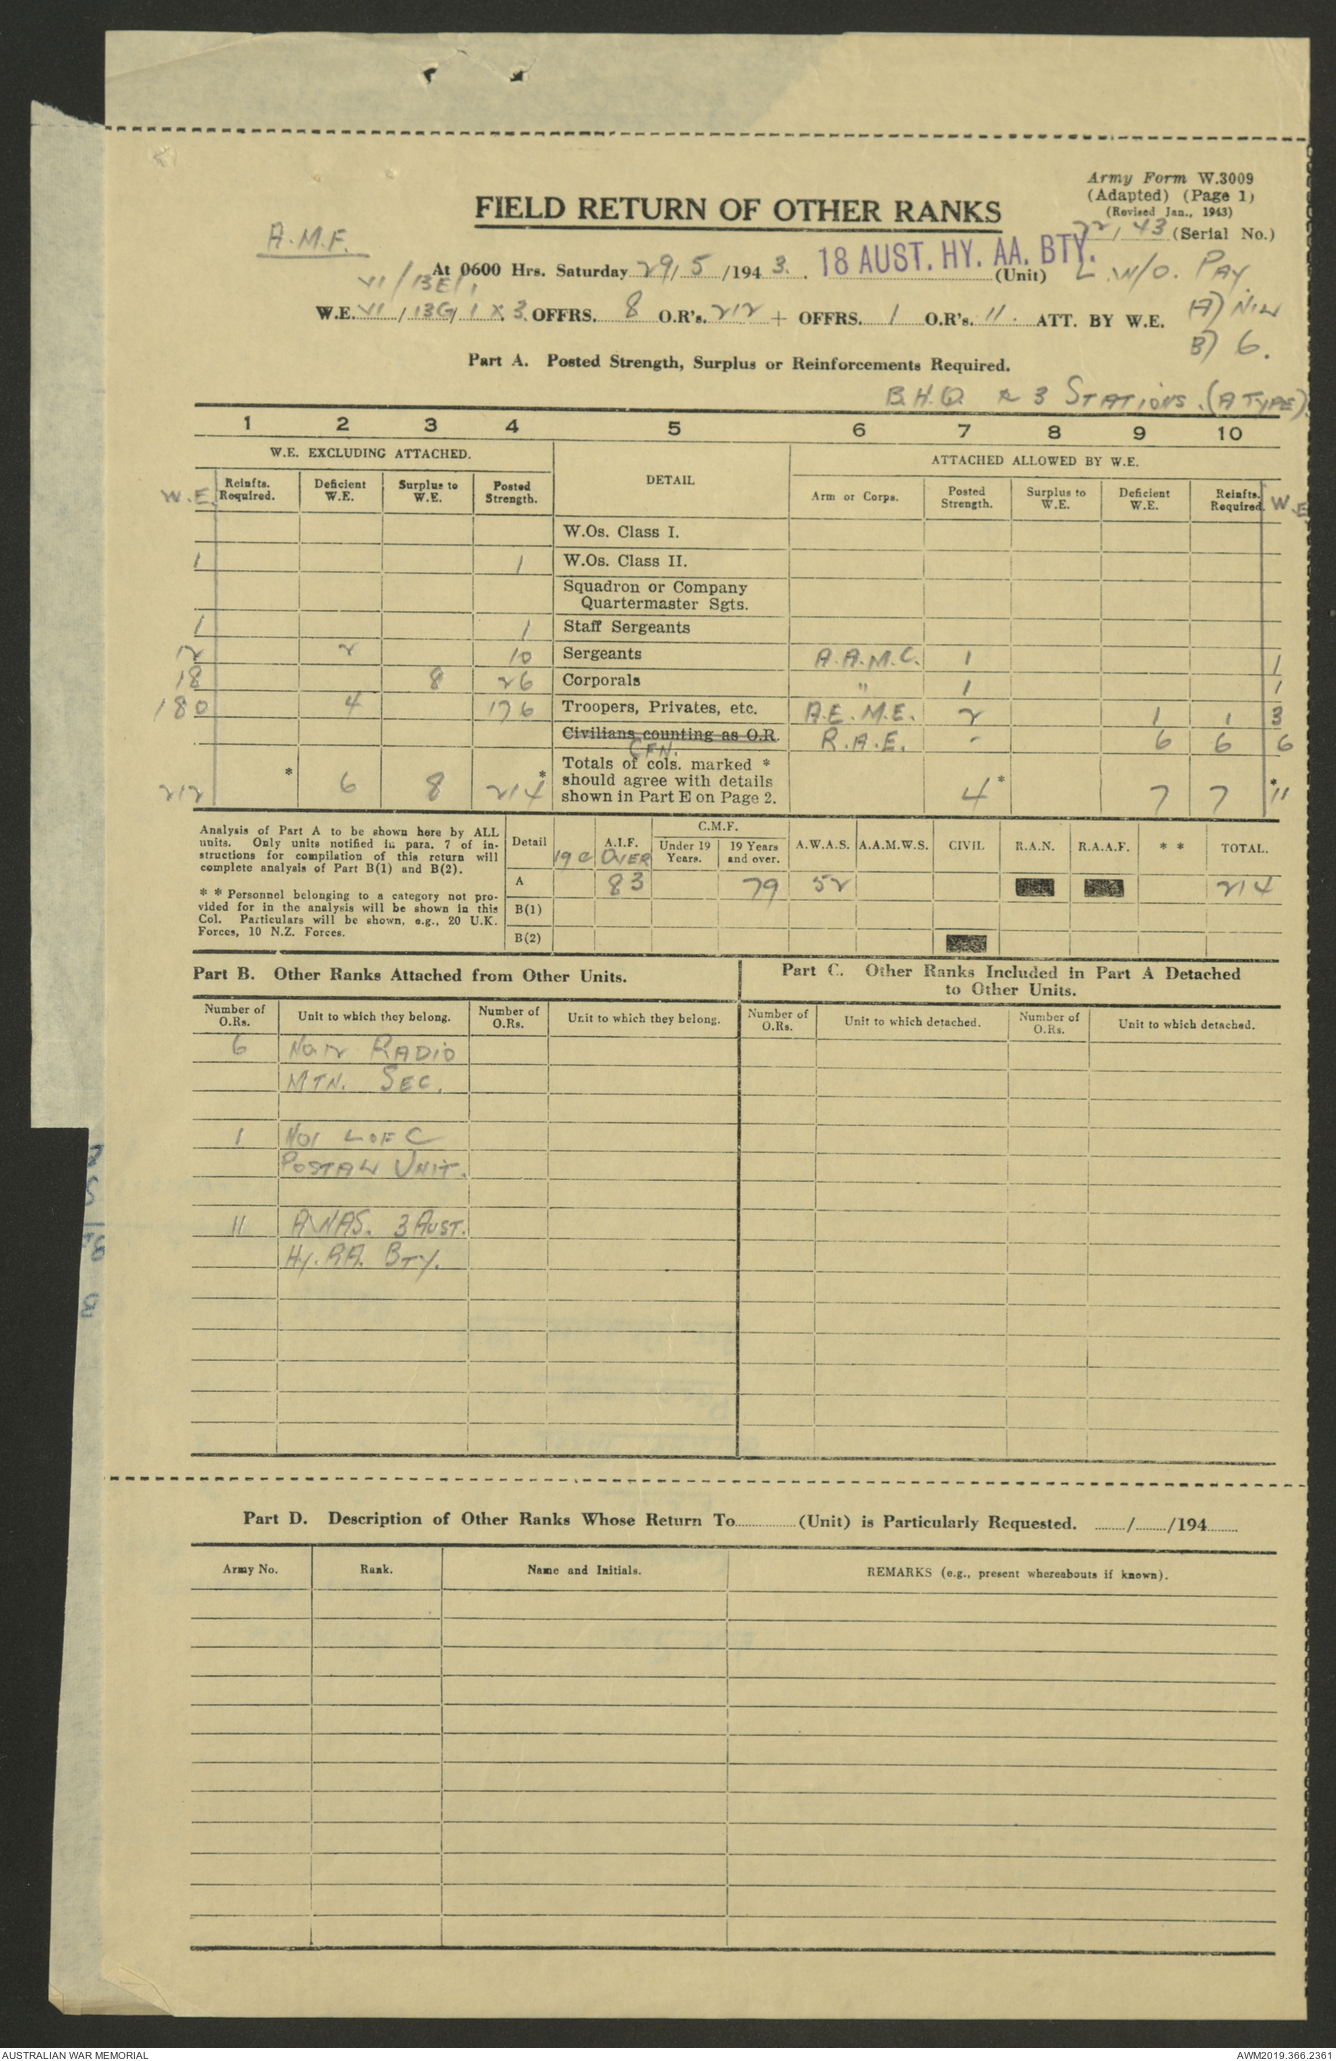 Army Form W.3009
(Adapted) (Page 1)
(Revised Jan., 1943)
22/43 (Serial No.)
FIELD RETURN OF OTHER RANKS
A.M.F.
At 0600 Hrs. Saturday 29/5/1943. 18 AUST. HY. AA. BTY. (Unit) L. W/O. PAY
VI/13E/1
W.E. VI/13G/1 X 3. OFFRS. 8 O.R's. 212 + OFFRS. 1 O.R's. 11. ATT. BY W.E. A) NIL
B) 6.
Part A. Posted Strength, Surplus or Reinforcements Required.
B.H.Q. & 3 STATIONS. (A TYPE).
1 2 3 4 5 6 7 8 9 10
W.E. EXCLUDING ATTACHED. DETAIL ATTACHED ALLOWED BY W.E.
W.E. Reinfts. Required. Deficient W.E. Surplus to W.E. Posted Strength. Arm or Corps. Posted Strength. Surplus to W.E. Deficient W.E. Reinfts. Required. W.E.
W.Os. Class I.
1 1 W.Os. Class II.
Squadron or Company
Quartermaster Sgts.
1 1 Staff Sergeants
12 2 10 Sergeants A.A.M.C. 1 1
18 8 26 Corporals " 1 1
180 4 176 Troopers, Privates, etc. A.E.M.E. 2 1 1 3
Civilians counting as O.R. R.A.E. - 6 6 6
CFN.
Totals of cols. marked *
should agree with details
shown in Part E on Page 2.
212 * 6 8 214 * 4 * 7 7 * 11
Analysis of Part A to be shown here by ALL
units. Only units notified in para. 7 of in-
structions for compilation of this return will
complete analysis of Part B(1) and B(2).
* * Personnel belonging to a category not pro-
vided for in the analysis will be shown in this
Col. Particulars will be shown, e.g., 20 U.K.
Forces, 10 N.Z. Forces.
C.M.F.
Detail A.I.F. Under 19 Years. 19 Years and over. A.W.A.S. A.A.M.W.S. CIVIL R.A.N. R.A.A.F. * * TOTAL.
19 & OVER
A 83 79 52 214
B(1)
B(2)
Part B. Other Ranks Attached from Other Units.
Part C. Other Ranks Included in Part A Detached
to Other Units.
Number of O.Rs. Unit to which they belong. Number of O.Rs. Unit to which they belong. Number of O.Rs. Unit to which detached. Number of O.Rs. Unit to which detached.
6 RADIO
MTN. SEC.
1 No1 L OF C
POSTAL UNIT.
11 AWAS. 3 AUST.
HY. AA. BTY.
Part D. Description of Other Ranks Whose Return To (Unit) is Particularly Requested. / /194
Army No. Rank. Name and Initials. REMARKS (e.g., present whereabouts if known).
AUSTRALIAN WAR MEMORIAL AWM2019.366.2361